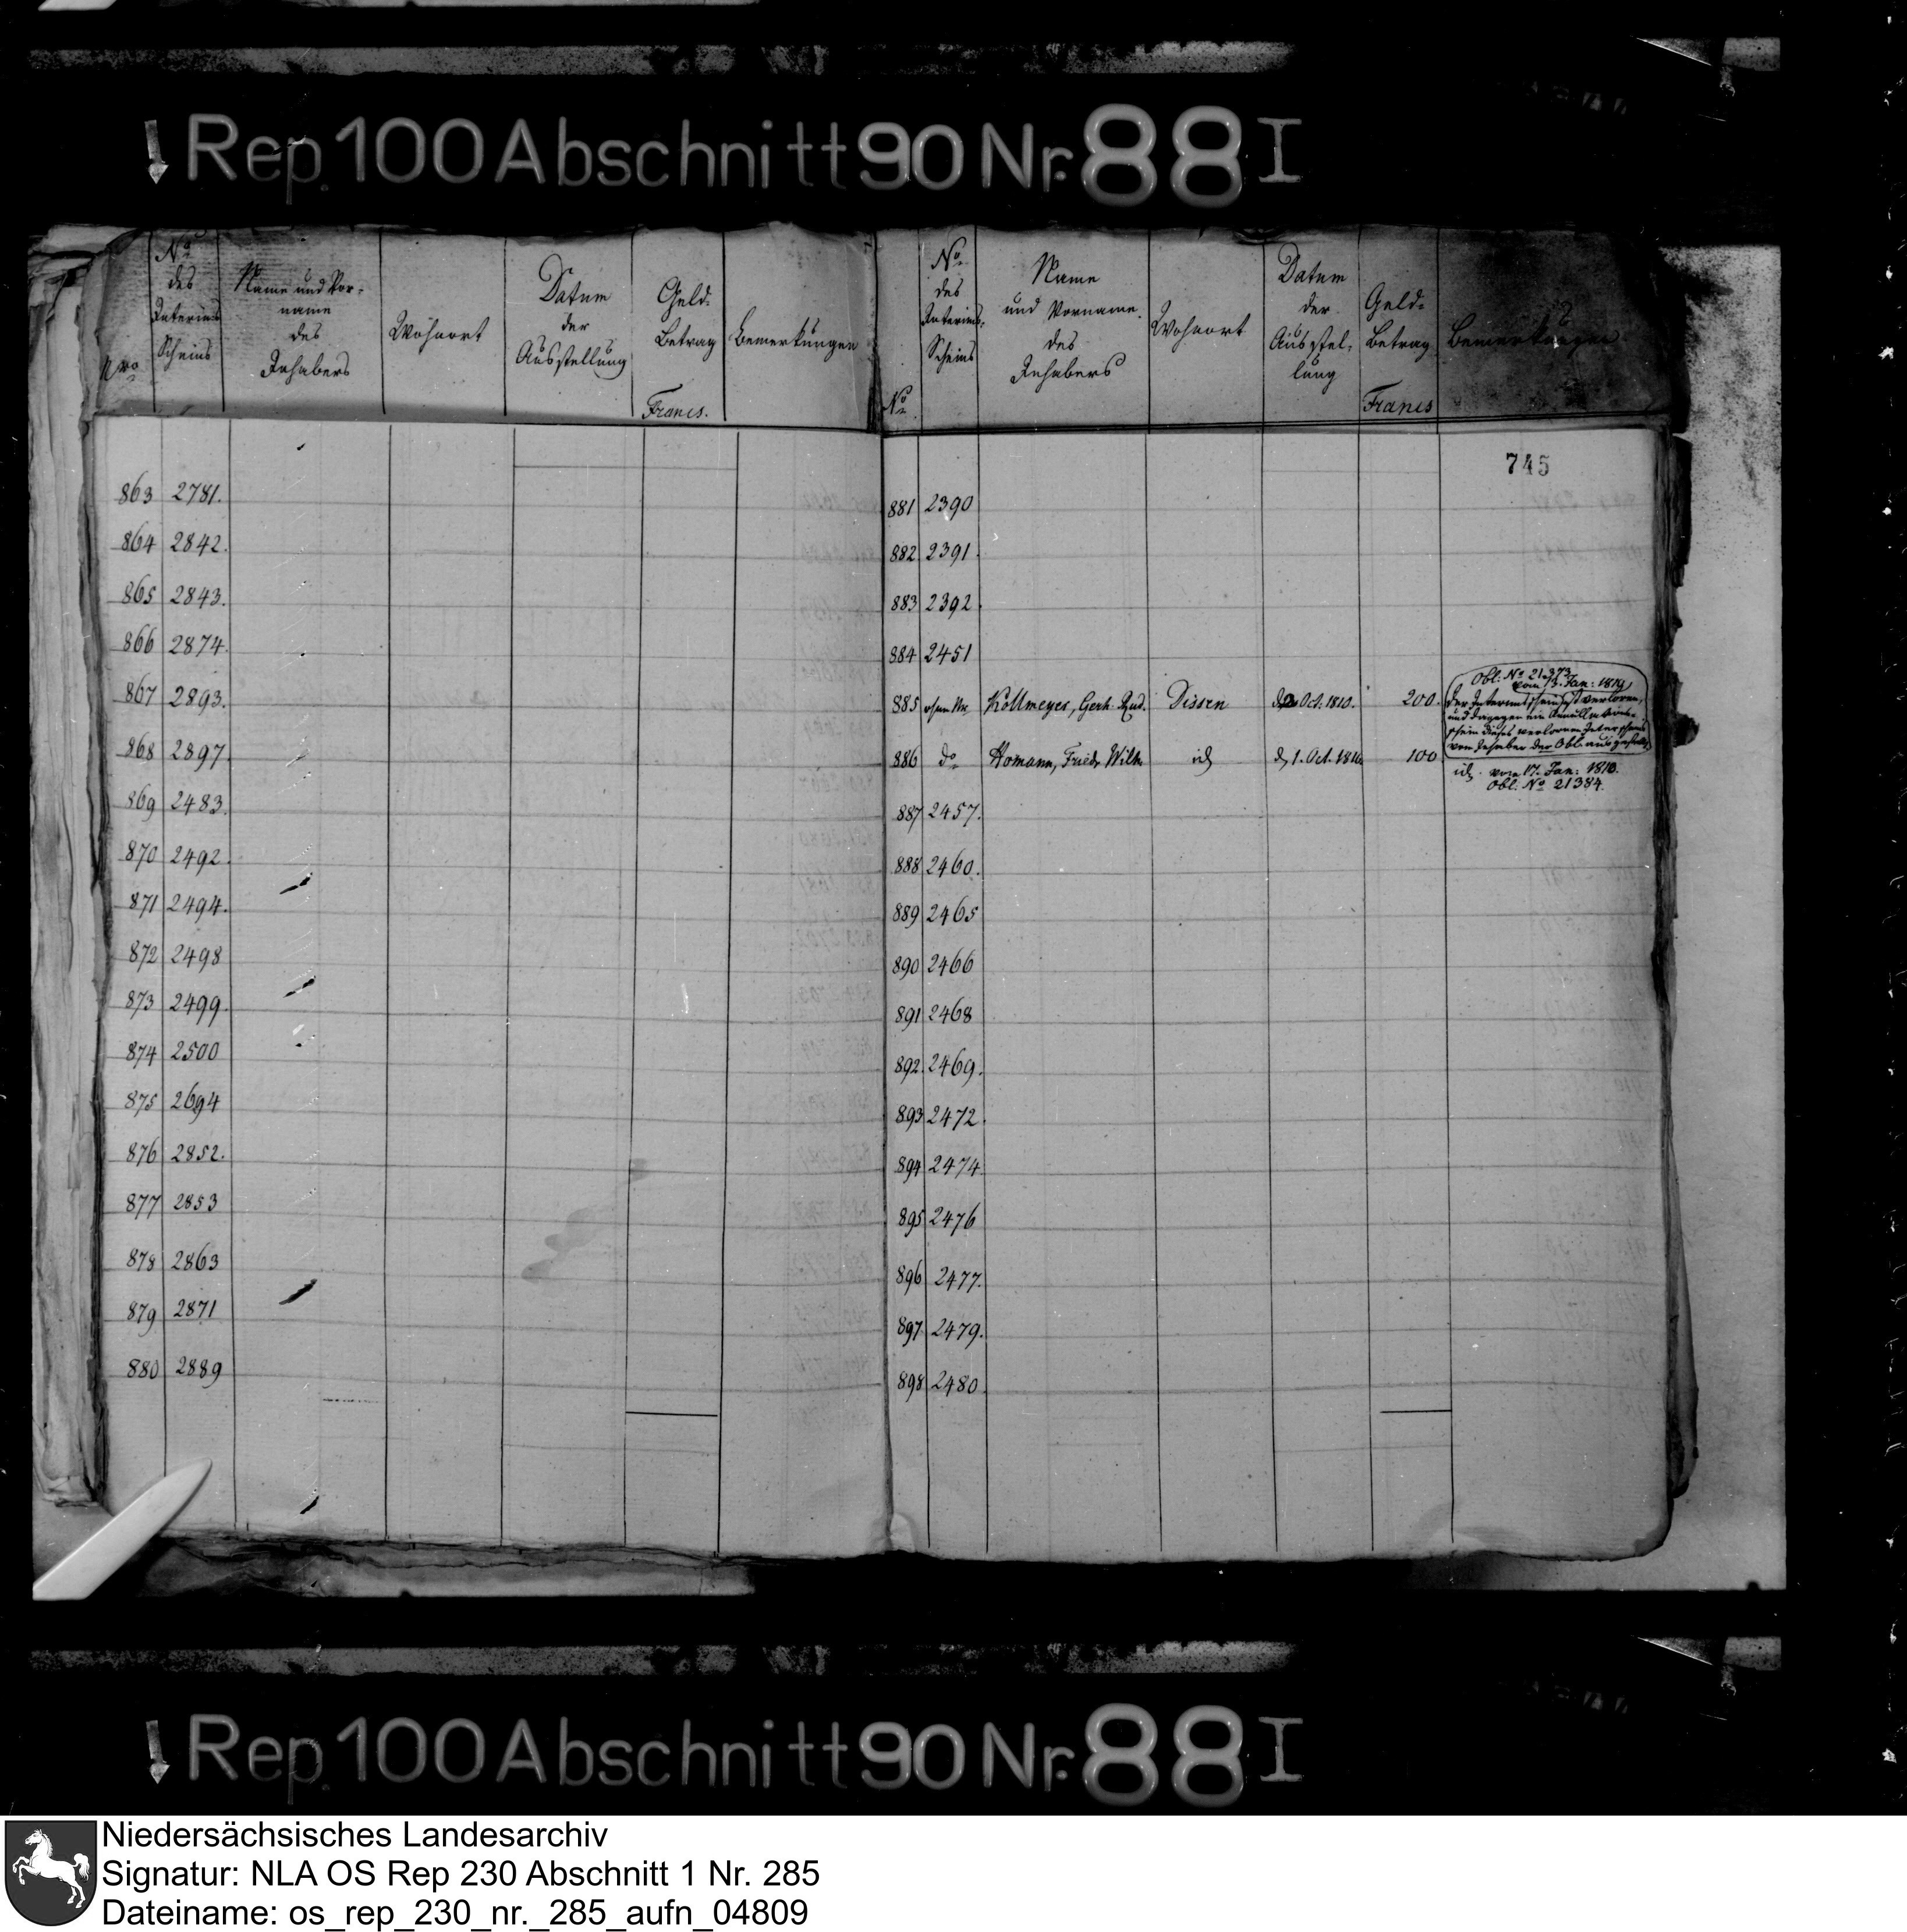 Rep. 100 Abschnitt 90 Nr. 88 I
Nro
No des Interims Scheins
Name und Vor-name des Inhabers
Wohnort
Datum der Ausstellung
Geld-Betrag Francs.
Bemerkungen
863 2781.
864 2842.
865 2843.
866 2874.
867 2893.
868 2897.
869 2483.
870 2492.
871 2494.
872 2498
873 2499.
874 2500
875 2694
876 2852.
877 2853
878 2863
879 2871
880 2889
No
No des Interims-Scheins
Name und Vorname des Inhabers
Wohnort
Datum der Ausstel-lung
Geld-Betrag Francs
Bemerkungen
745
881 2390
882 2391.
883 2392.
884 2451
885 ohne Nr. Kollmeyer, Gerh. Rud. Dissen Oct. 1810. 200.
Obl. No 21373
vom 13. Jan: 1819
Der Interimsschein ist verloren,
und dagegen ein
schein dieses verlorenen Interimsscheins
vom Inhaber der Obl. ausgestellt
886 do Homann, Friedr. Wilh. id d. 1. Oct. 1810. 100
id. vom 17. Jan: 1810.
Obl. No 21384.
887 2457.
888 2460.
889 2465
890 2466
891 2468
892. 2469.
893 2472.
894 2474.
895 2476
896 2477.
897 2479.
898 2480.
Rep. 100 Abschnitt 90 Nr. 88 I
Niedersächsisches Landesarchiv
Signatur: NLA OS Rep 230 Abschnitt 1 Nr. 285
Dateiname: os_rep_230_nr._285_aufn_04809